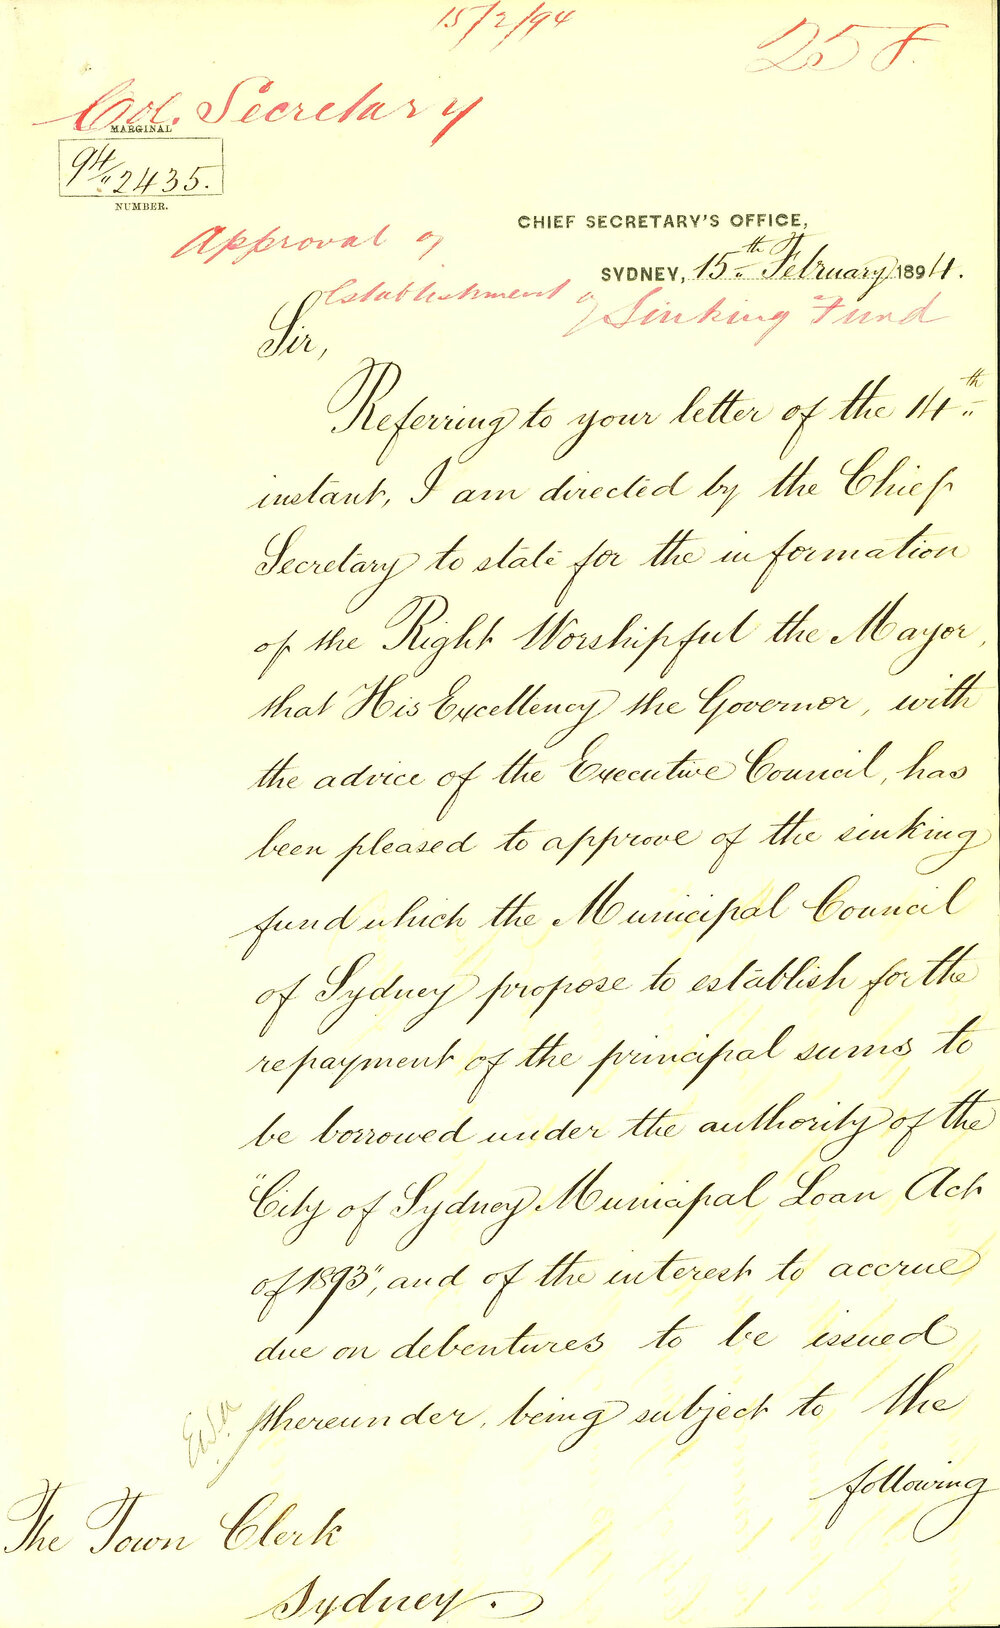 15/2/94
258.
Col. Secretary
MARGINAL
94/2435.
NUMBER.
CHIEF SECRETARY'S OFFICE,
SYDNEY, 15th February 1894.
Approval of
Establishment of Sinking Fund
Sir,
Referring to your letter of the 14th
instant, I am directed by the Chief
Secretary to state for the information
of the Right Worshipful the Mayor,
that His Excellency the Governor, with
the advice of the Executive Council, has
been pleased to approve of the sinking
fund which the Municipal Council
of Sydney propose to establish for the
repayment of the principal sums to
be borrowed under the authority of the
"City of Sydney Municipal Loan Act
of 1893", and of the interest to accrue
due on debentures to be issued
thereunder, being subject to the
following
The Town Clerk
Sydney.